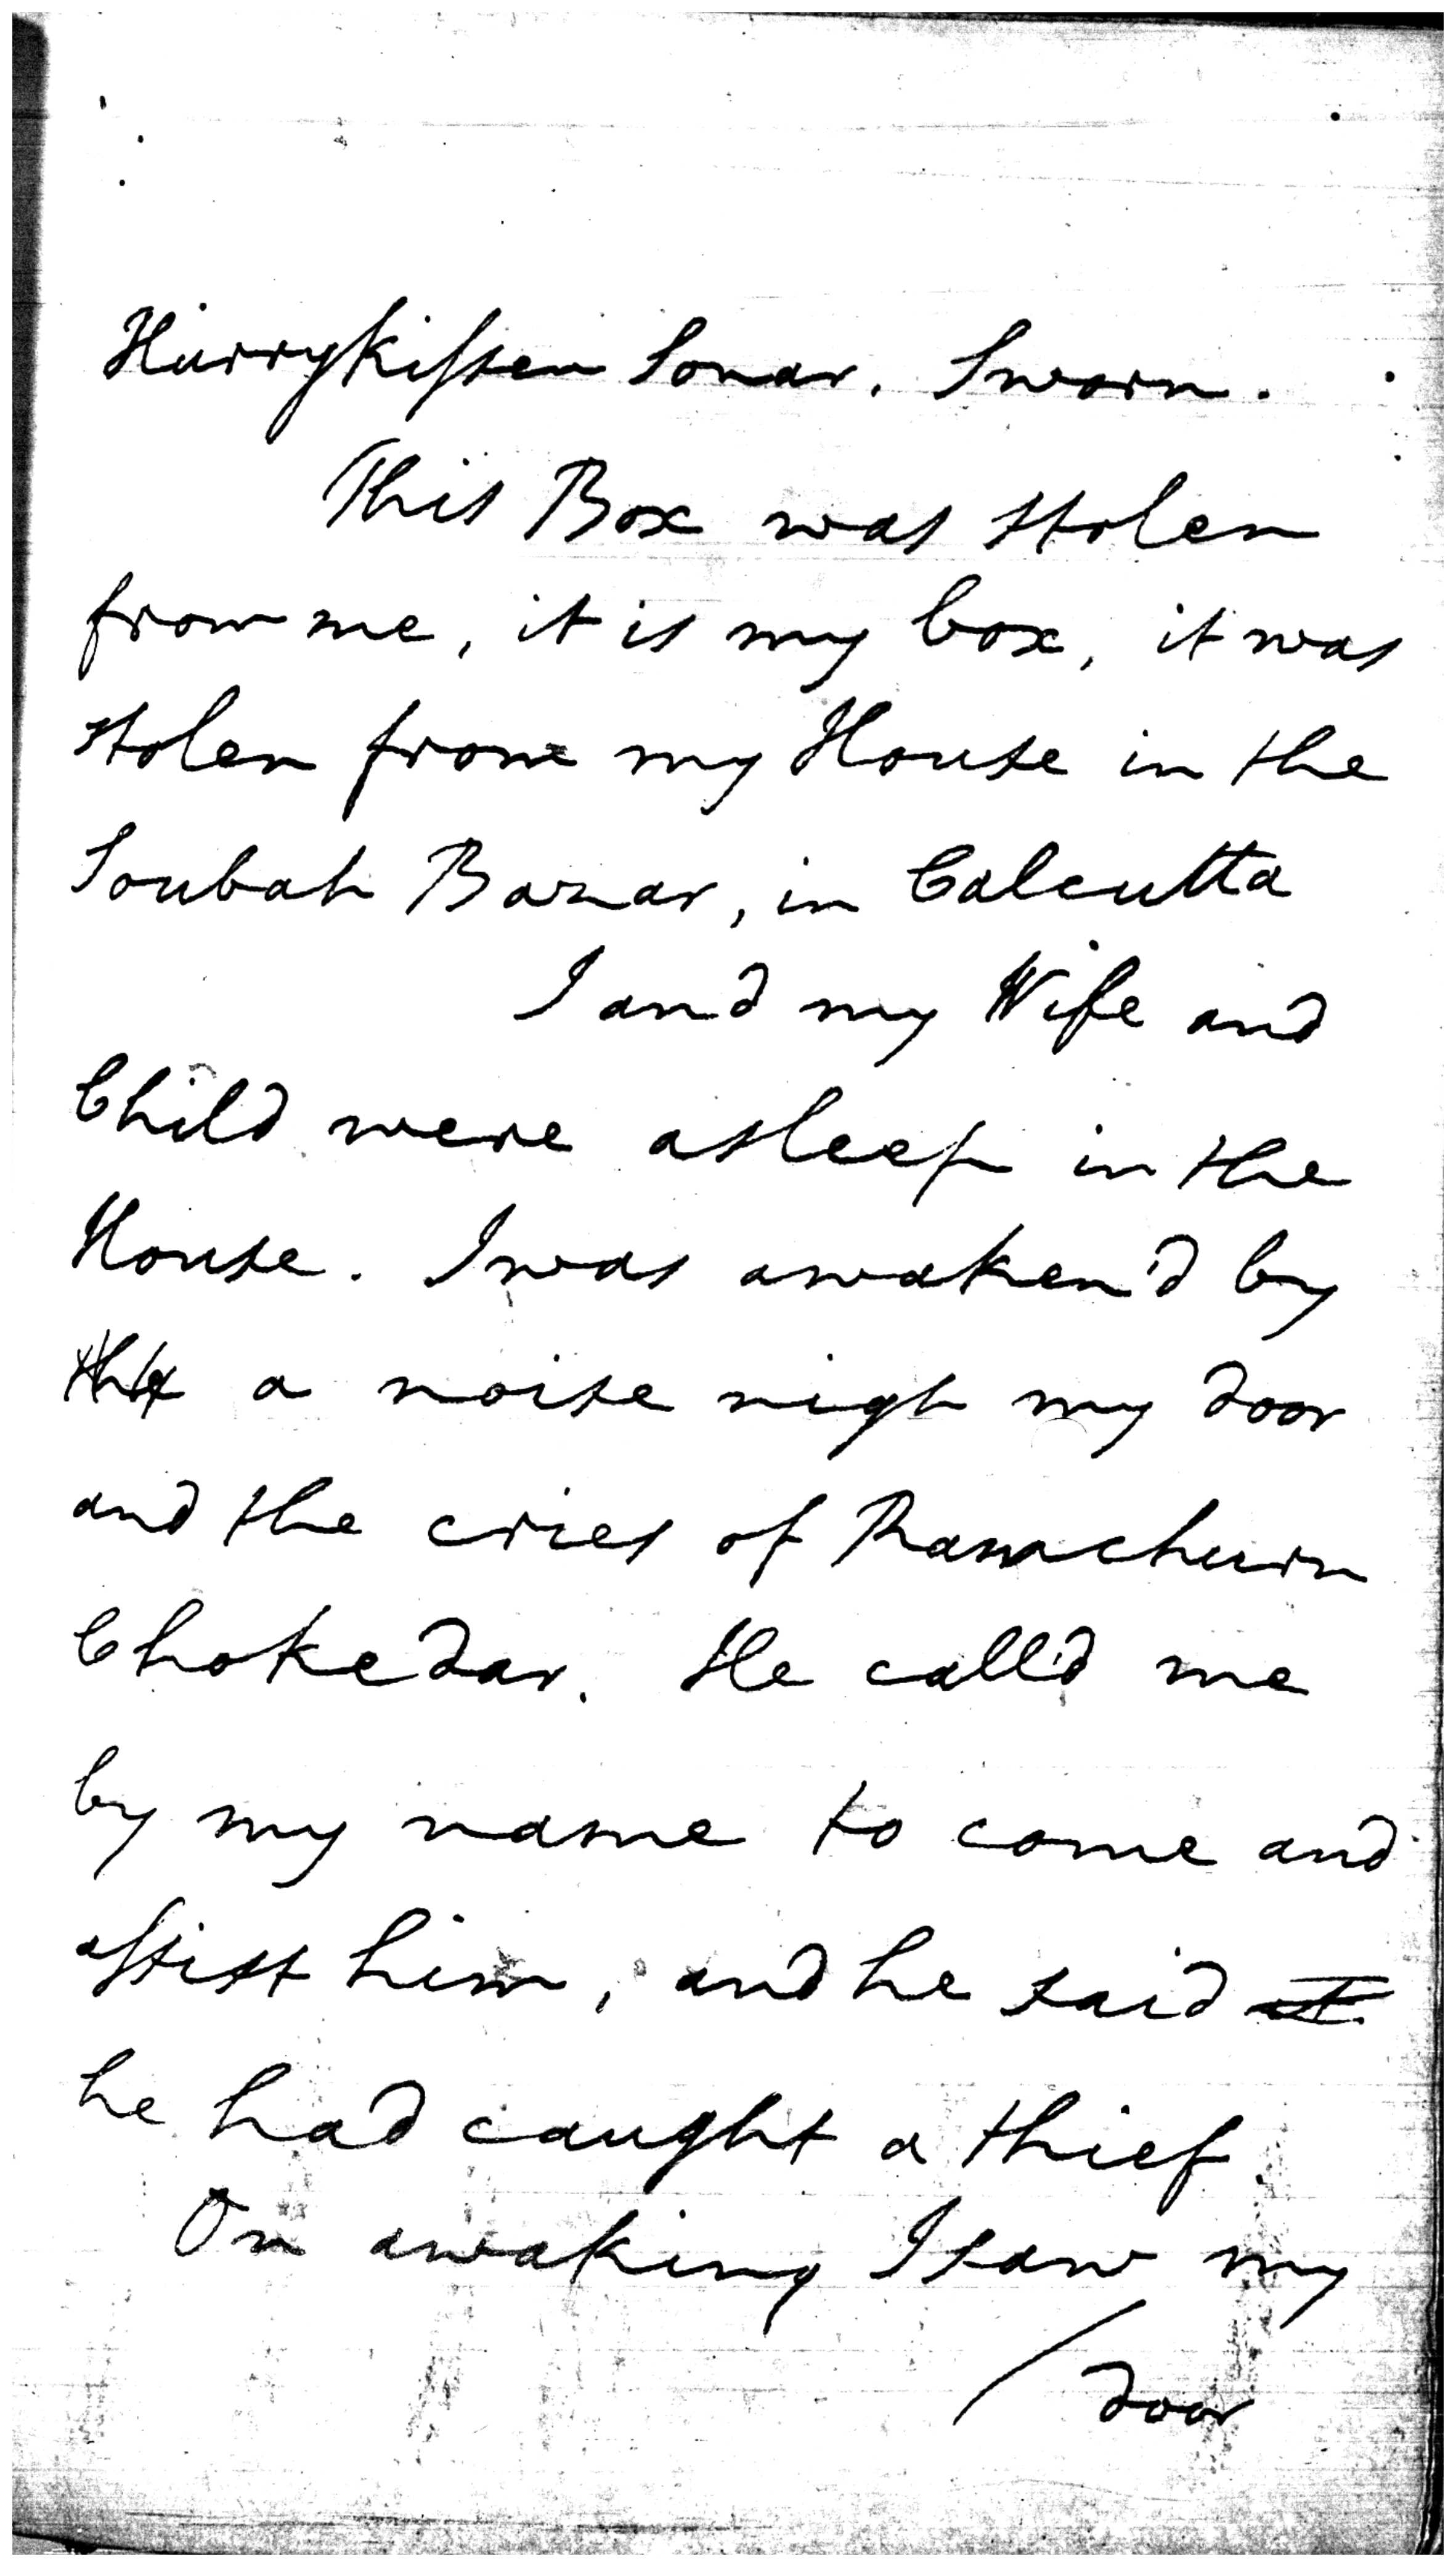 Hurrykissen Sonar. Sworn.
This Box was stolen
from me, it is my box, it was
stolen from my House in the
Soubah Bazar, in Calcutta
I and my Wife and
Child were asleep in the
House. I was awaken'd by
the a noise nigh my door
and the cries of Ramchurn
Chokedar. He call'd me
by my name to come and
assist him, and he said
he had caught a thief.
On awaking I saw my
/door